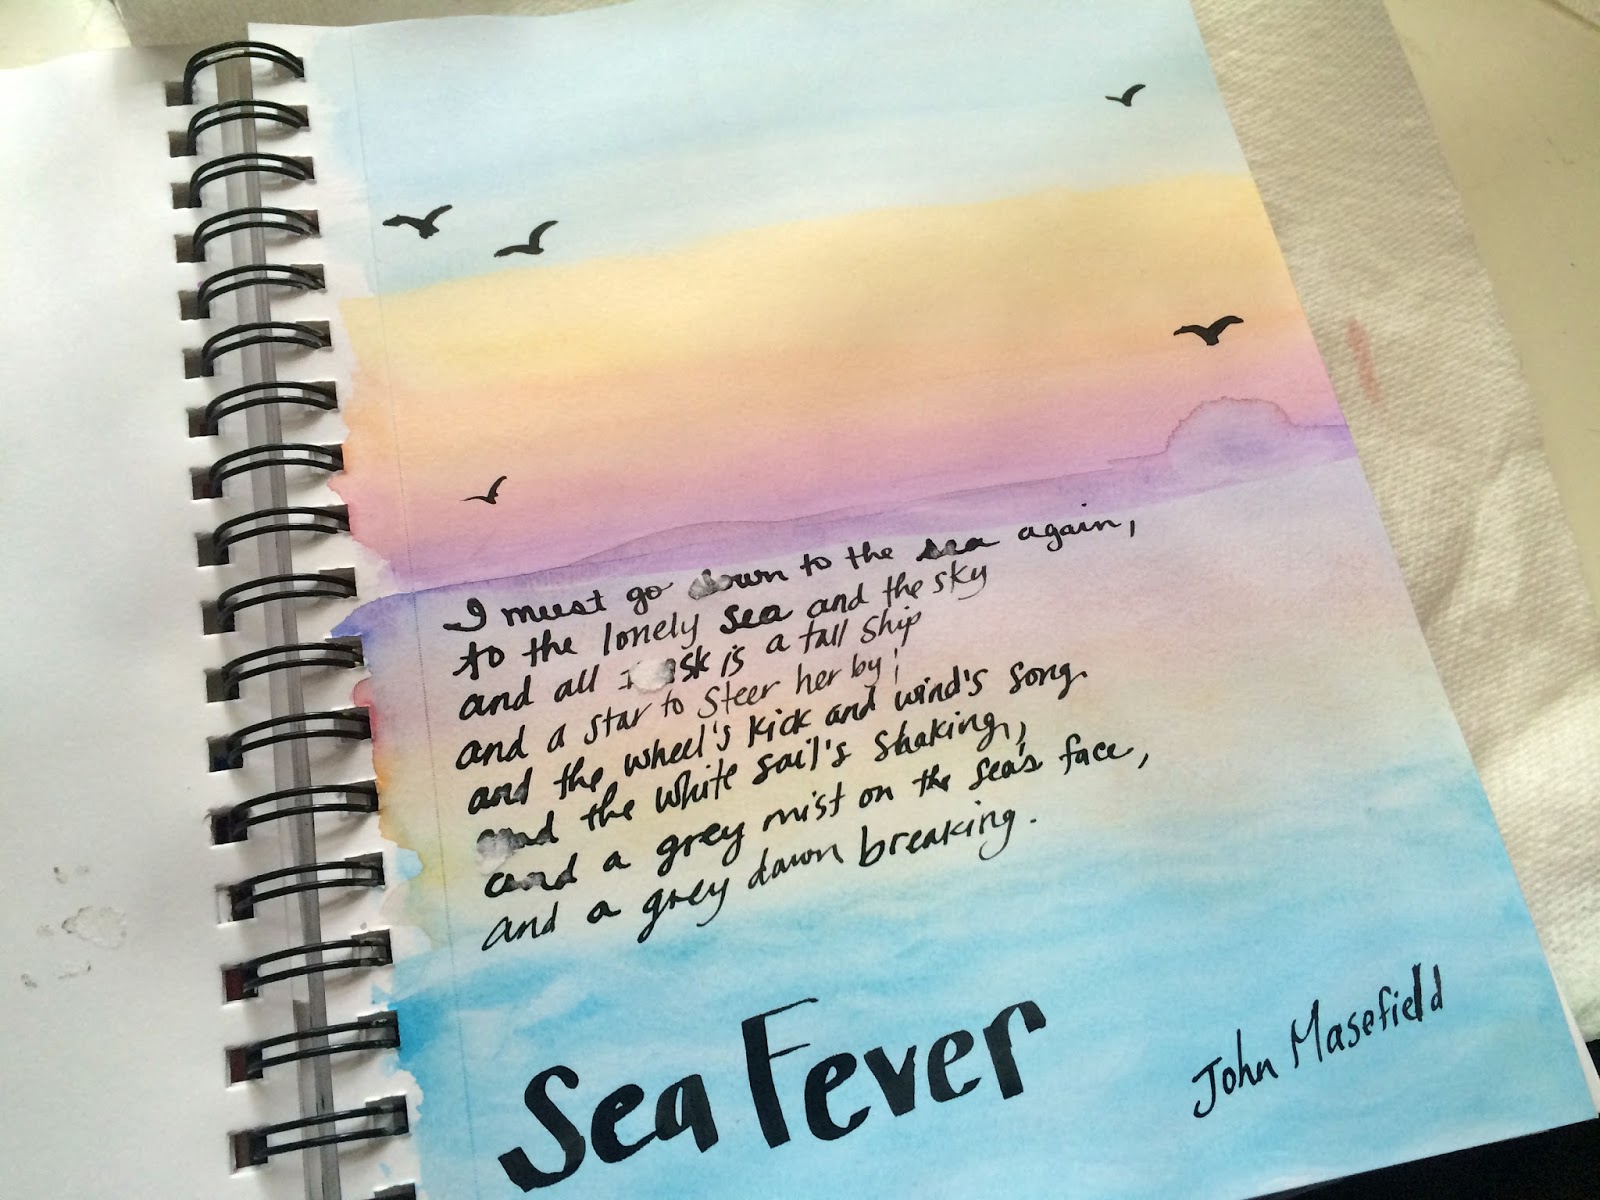 I must go down to the sea again,
to the lonely sea and the sky
and all I ask is a tall ship
and a star to steer her by;
and the wheel's kick and wind's song.
and the white sail's shaking,
and a grey mist on the sea's face,
and a grey dawn breaking.
Sea Fever
John Masefield